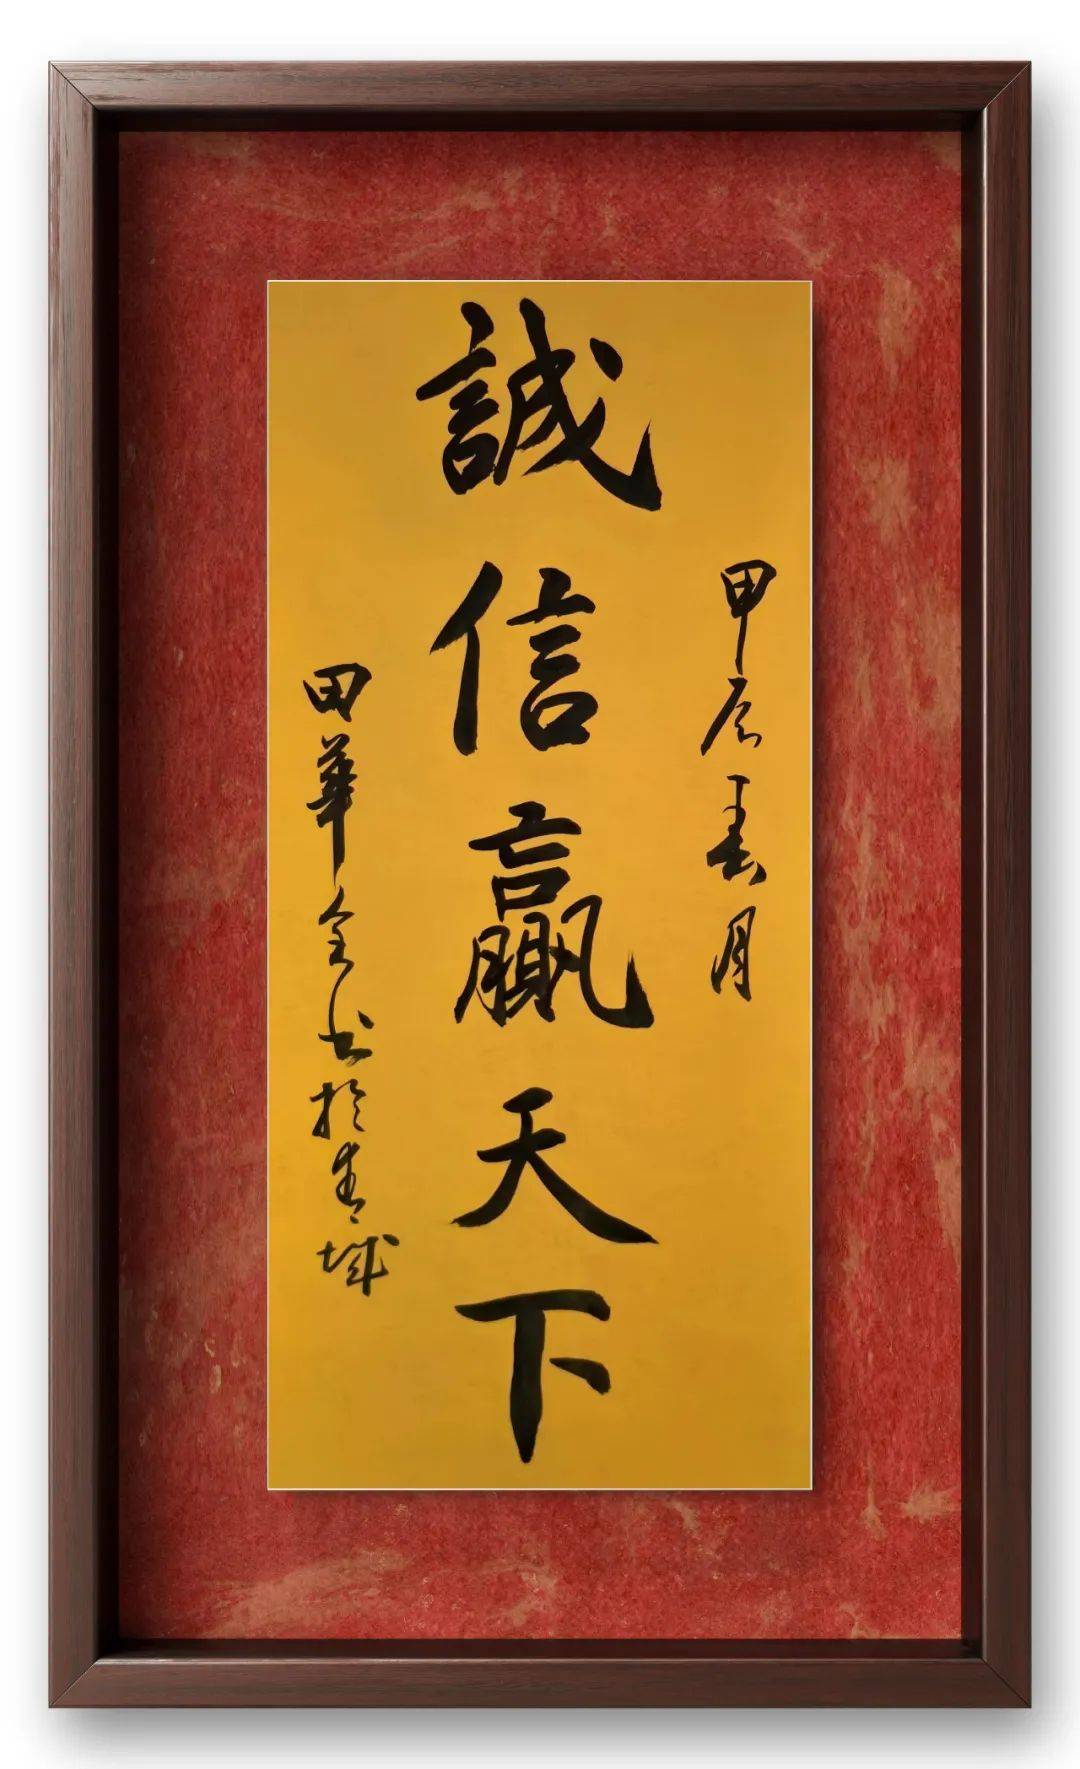 甲辰春月
誠信贏天下
田華全书於青城